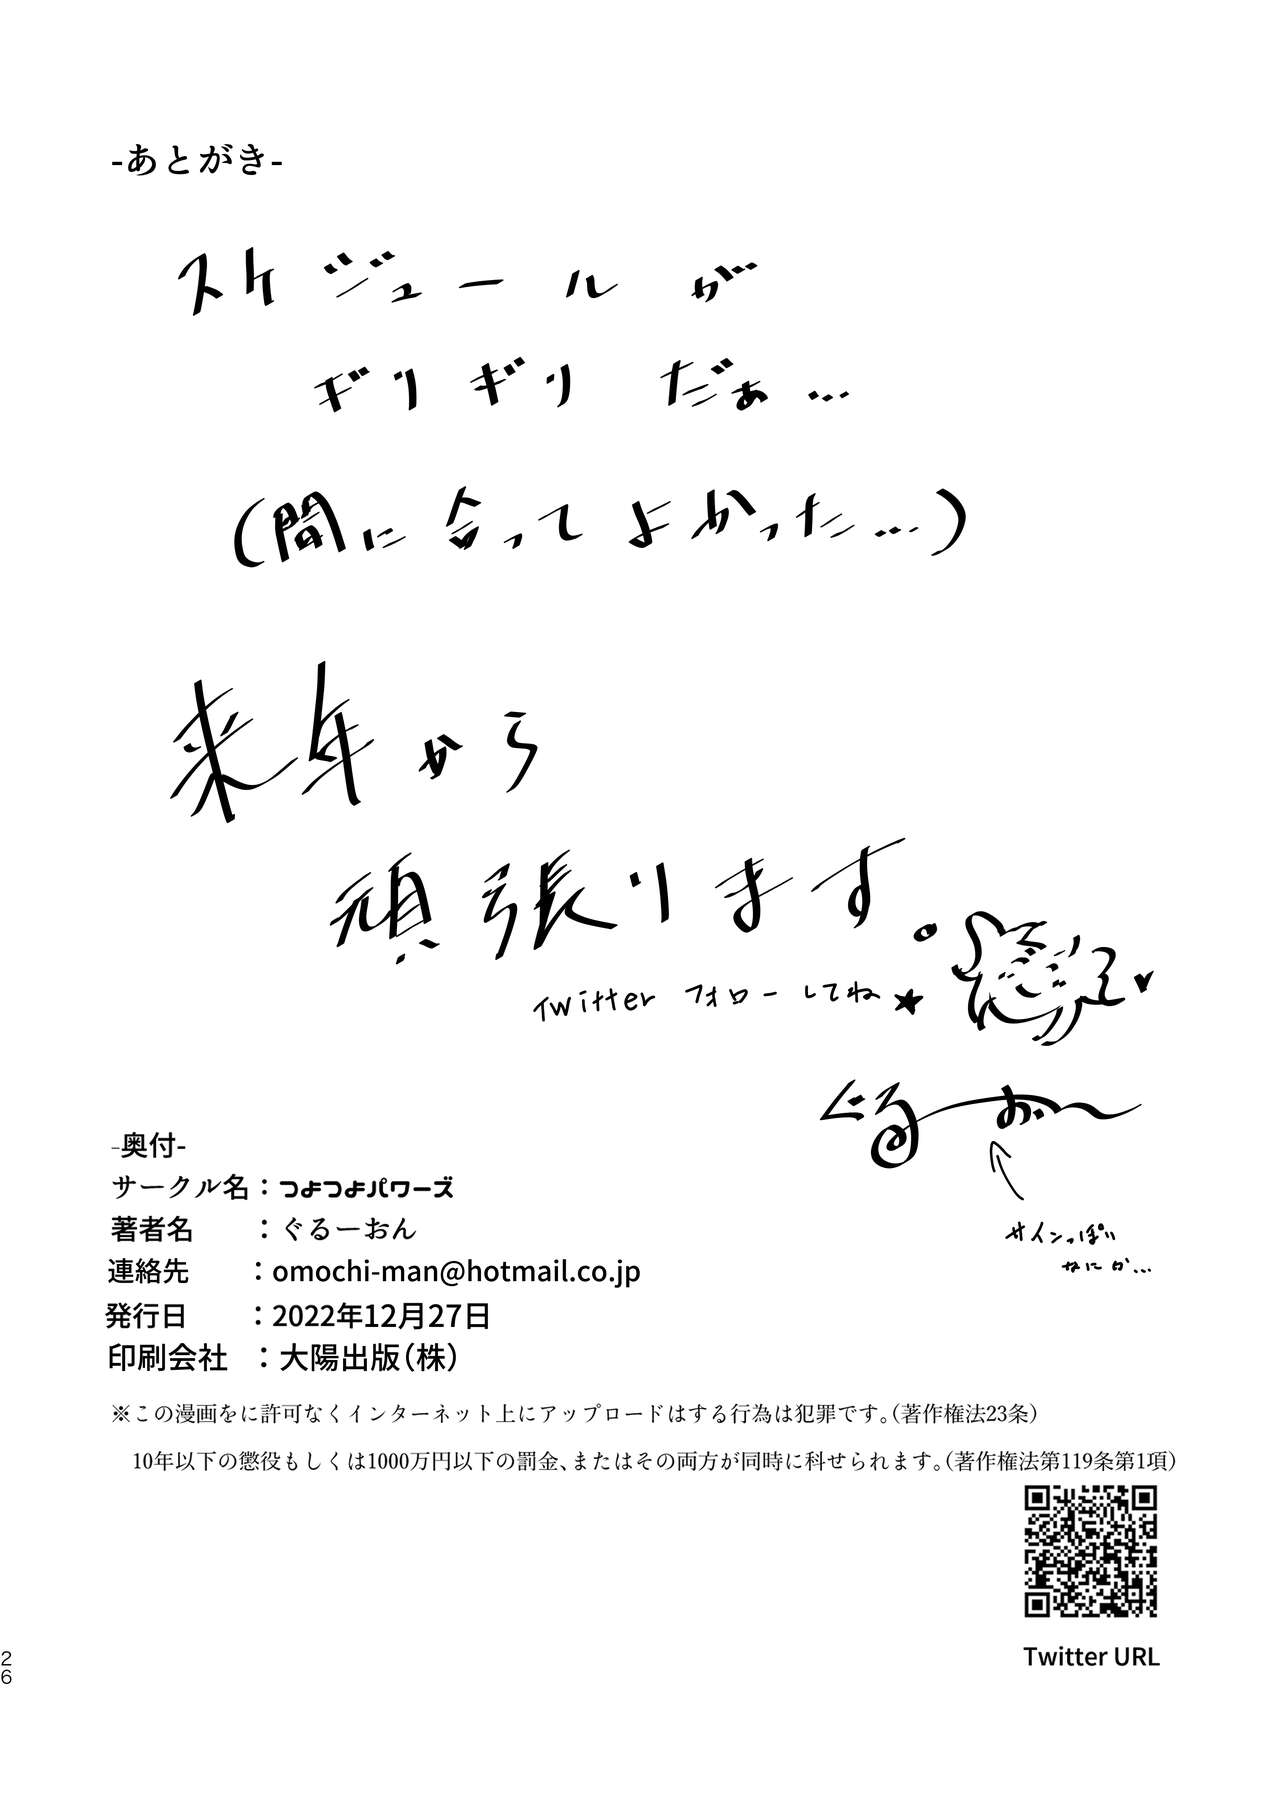 -あとがき-
スケジュールが
ギリギリだぁ…
(間に合ってよかった…)
来年から
頑張ります。
Twitter フォローしてね★
ぐるーおん
サインっぽい
なにか…
-奥付-
サークル名：つよつよパワーズ
著者名　　：ぐるーおん
連絡先　　：omochi-man@hotmail.co.jp
発行日　　：2022年12月27日
印刷会社　：大陽出版(株)
※この漫画をに許可なくインターネット上にアップロードはする行為は犯罪です。(著作権法23条)
10年以下の懲役もしくは1000万円以下の罰金、またはその両方が同時に科せられます。(著作権法第119条第1項)
Twitter URL
26